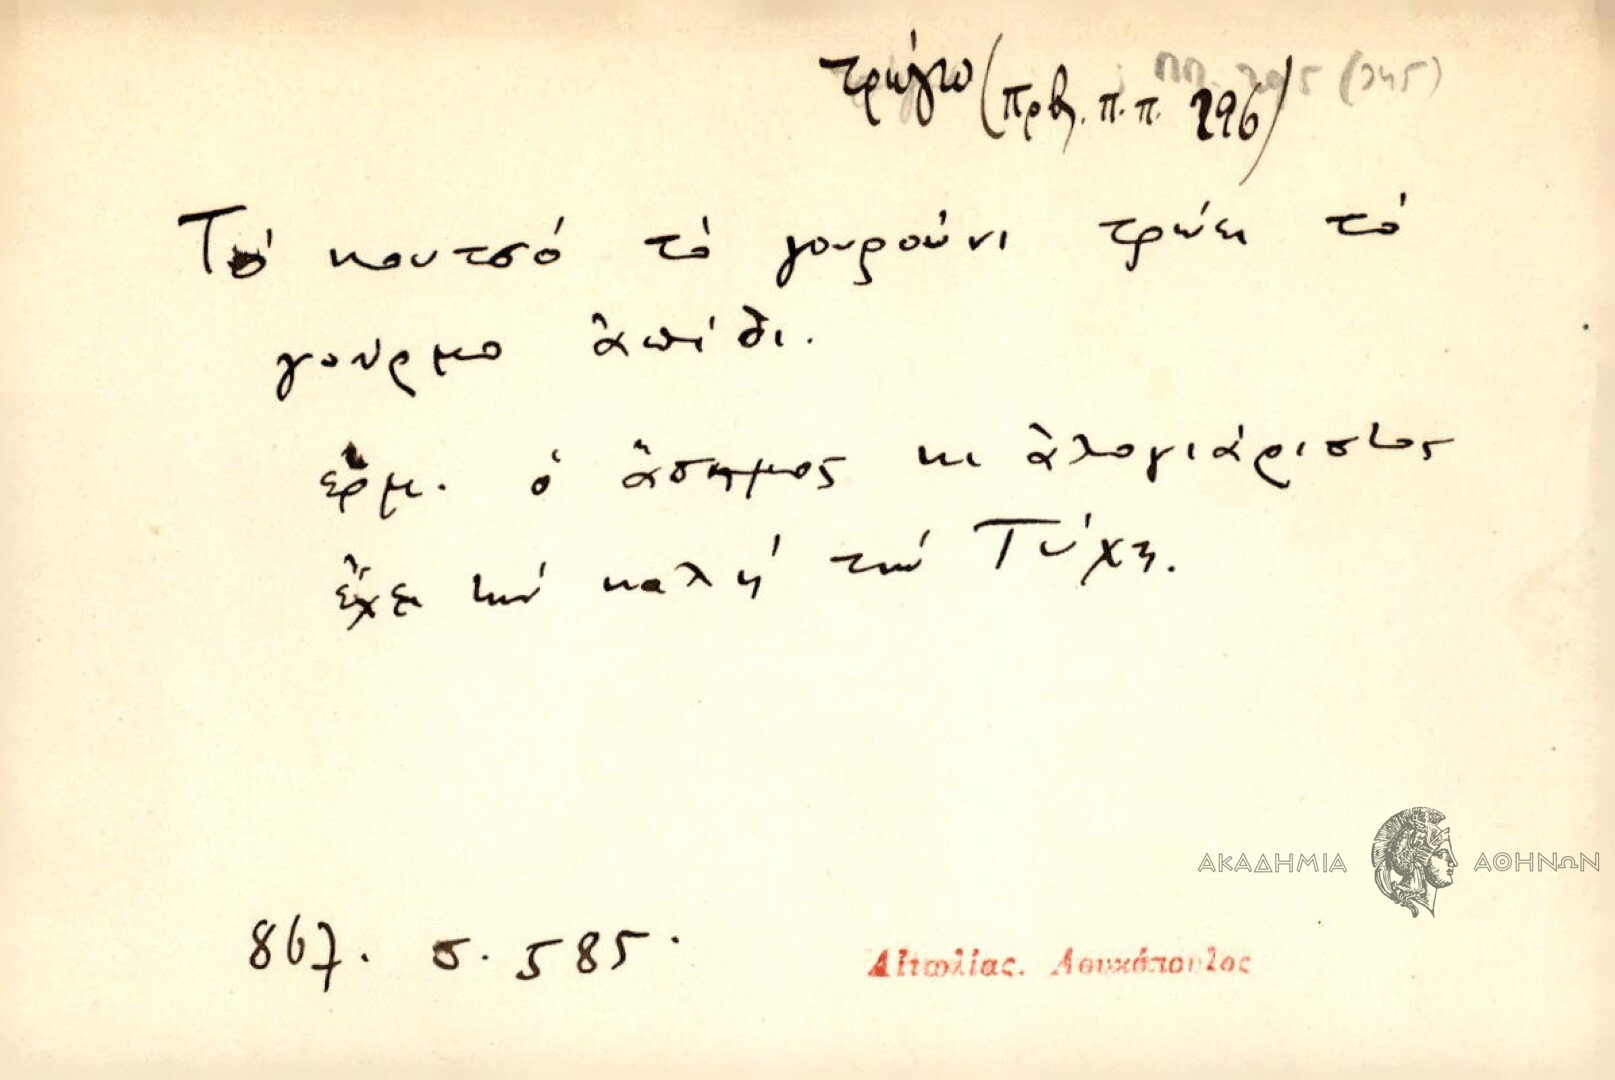 τρώγω (Πρβ. π.π. 296)
ΠΠ. 295 (345)
Τὸ κουτσό τὸ γουρούνι τρώει τὸ
γούρμο ἀπίδι.
ἑρμ. ὁ ἄσημος κι ἀλογιάριστος
ἔχει τὴν καλή τὴν Τύχη.
ΑΚΑΔΗΜΙΑ ΑΘΗΝΩΝ
867. σ. 585.
Αἰτωλίας. Λουκόπουλος